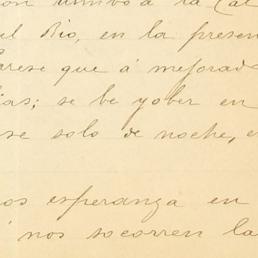 a la Cal
Rio, en la presen
que á mejorad
ias; se be yober en
se solo de noche, e
os esperanza en
nos socorren la